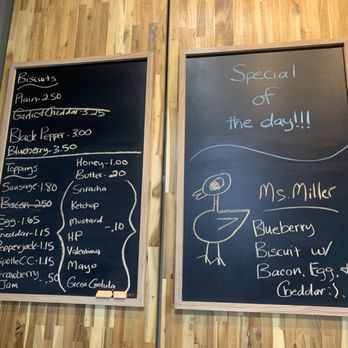 Biscuits
Plain - 2.50
Garlic Cheddar - 3.25
Black Pepper - 3.00
Blueberry - 3.50
Toppings
Sausage - 1.80
Bacon - 2.50
Egg - 1.65
Cheddar - 1.15
Pepperjack - 1.15
Chipotle CC - 1.15
Strawberry Jam - .50
Honey - 1.00
Butter - .20
Sriracha
Ketchup
Mustard
HP
Valentina
Mayo
- .10
Special
of
the day!!!
Ms. Miller
Blueberry
Biscuit w/
Bacon, Egg, &
Cheddar :}